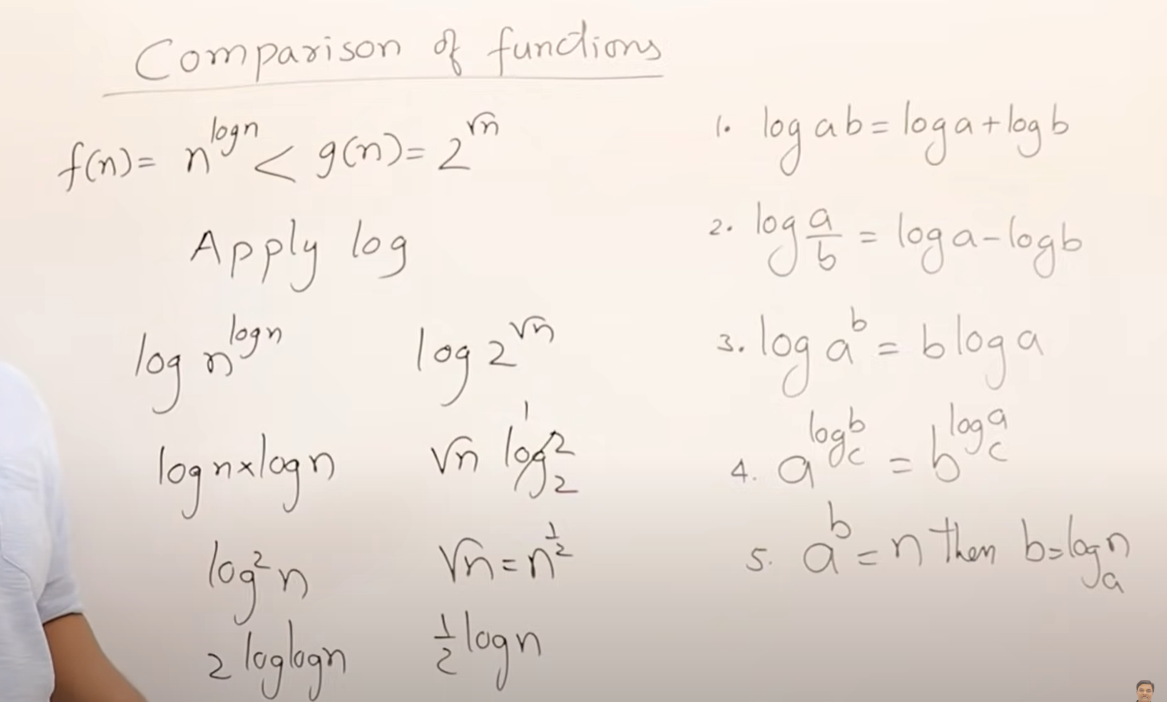 Comparison of functions
f(n) = n^logn < g(n) = 2^√n
Apply log
log n^logn log 2^√n
logn×logn √n log₂2 1
log²n √n = n^½
2 loglogn ½ logn
1. log ab = loga + logb
2. log a/b = loga - logb
3. log a^b = b log a
4. a^(log_c b) = b^(log_c a)
5. a^b = n then b = log_a n